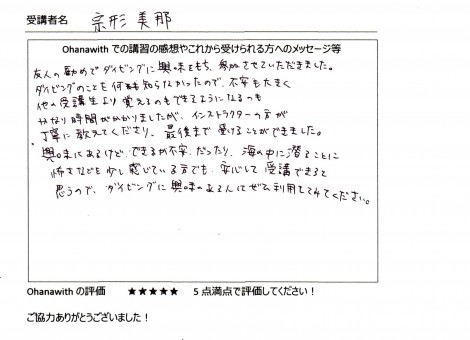 受講者名 宗形 美那
Ohanawith での講習の感想やこれから受けられる方へのメッセージ等
友人の勧めでダイビングに興味をもち、参加させていただきました。
ダイビングのことを何も知らなかったので、不安も大きく
他の受講生より覚えるのもできるようになるのも
かなり時間がかかりましたが、インストラクターの方が
丁寧に教えてくださり、最後まで受けることができました。
興味はあるけど、できるか不安だったり、海の中に潜ることに
怖さなどを少し感じている方でも、安心して受講できると
思うので、ダイビングに興味のある人はぜひ利用してみてください。
Ohanawith の評価 ★★★★★ 5 点満点で評価してください！
ご協力ありがとうございました！